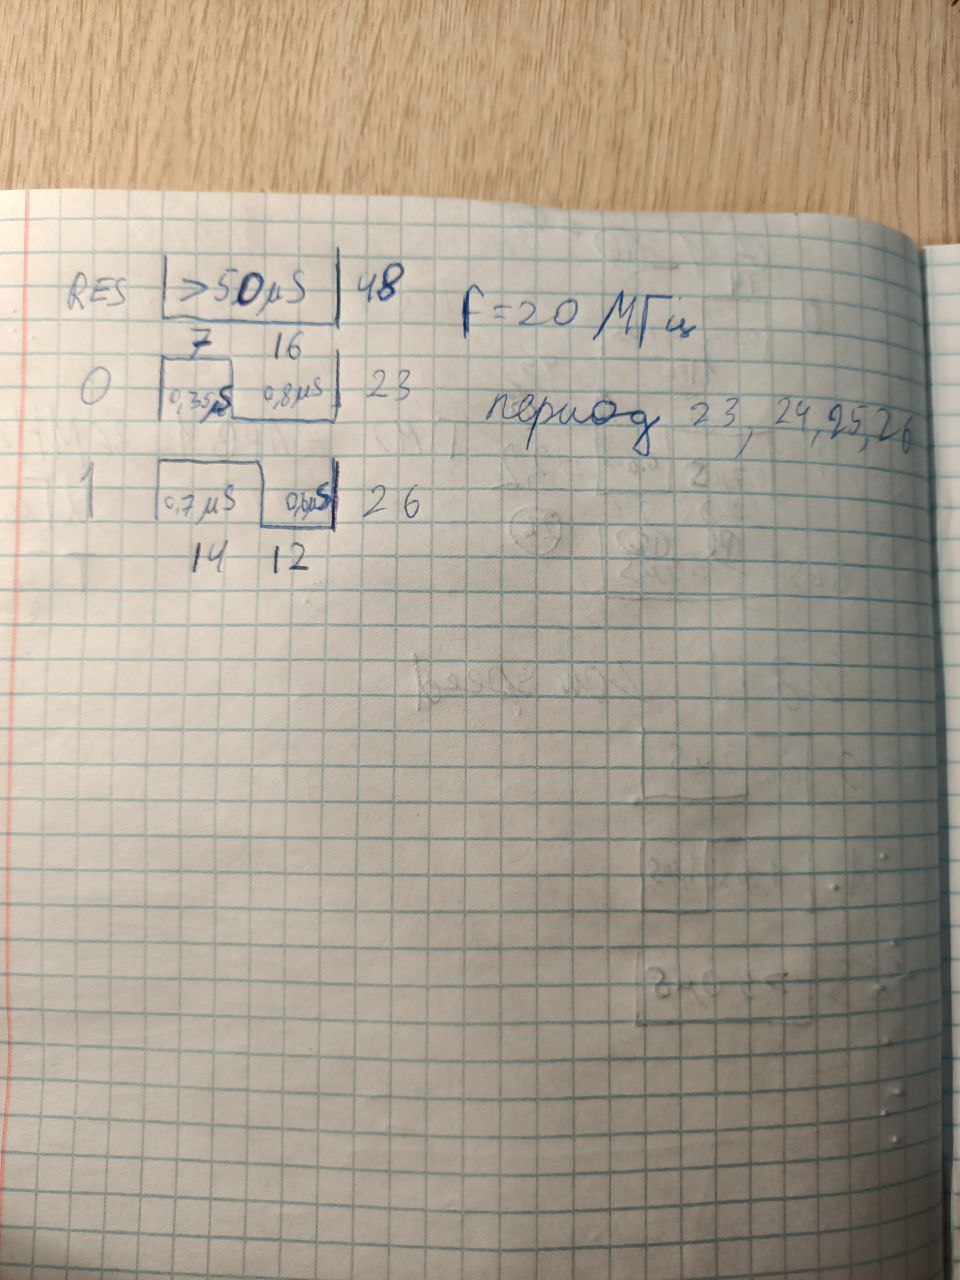 RES >50 μS 48
f = 20 МГц
7 16
0 0,35μS 0,8μS 23
период 23, 24, 25, 26
1 0,7 μS 0,6μS 26
14 12